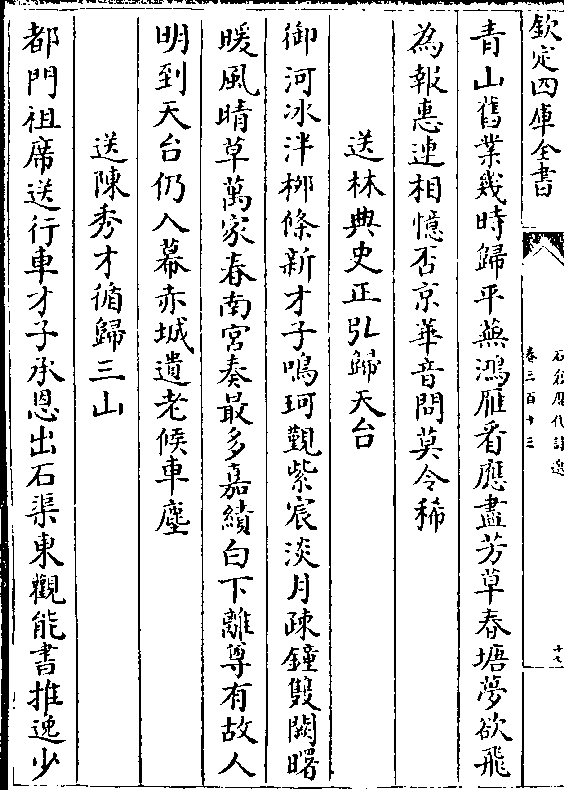 欽定四庫全書
石倉歷代詩選
卷三百十三
十七
青山舊業幾時歸平蕪鴻雁看應盡芳草春塘夢欲飛
為報惠連相憶否京華音問莫令稀
送林典史正弘歸天台
御河冰泮柳條新才子鳴珂覲紫宸淡月疎鐘雙闕曙
暖風晴草萬家春南宮奏最多嘉績白下離尊有故人
明到天台仍入幕赤城遺老候車塵
送陳秀才循歸三山
都門祖席送行車才子承恩出石渠東觀能書推逸少